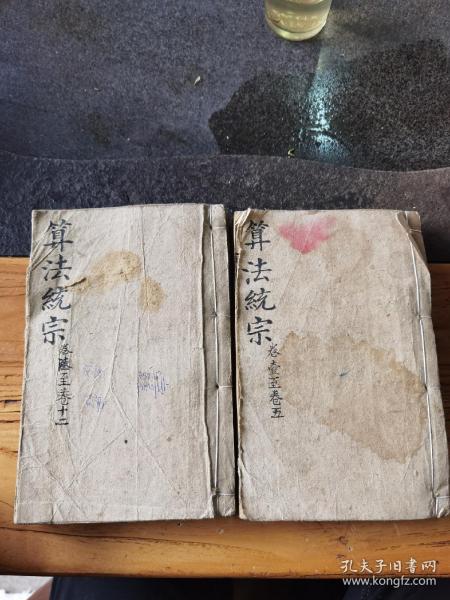 算法統宗
卷壹至卷五
算法統宗
卷陸至卷十二
孔夫子旧书网
www.kongfz.com